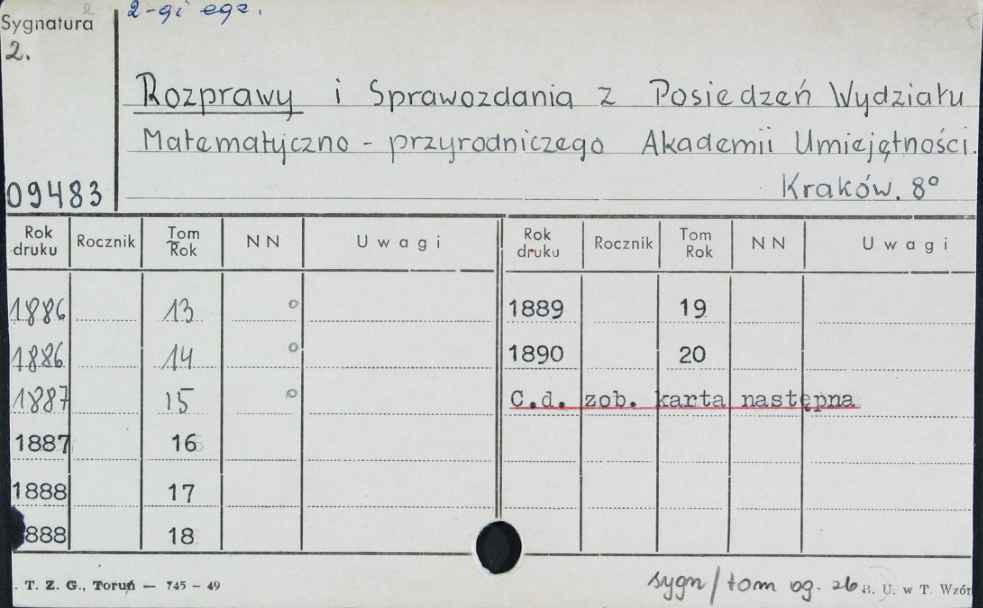 2-gi egz.
Sygnatura
2.
Rozprawy i Sprawozdania z Posiedzeń Wydziału
Matematyczno - przyrodniczego Akademii Umiejętności.
Kraków. 8°
09483
Rok druku Rocznik Tom Rok NN Uwagi Rok druku Rocznik Tom Rok NN Uwagi
1886 13 o 1889 19
1886 14 o 1890 20
1887 15 o C.d. zob. karta następna
1887 16
1888 17
888 18
. T. Z. G., Toruń — 745 – 49 sygn/tom og. 26 B. U. w T. Wzór